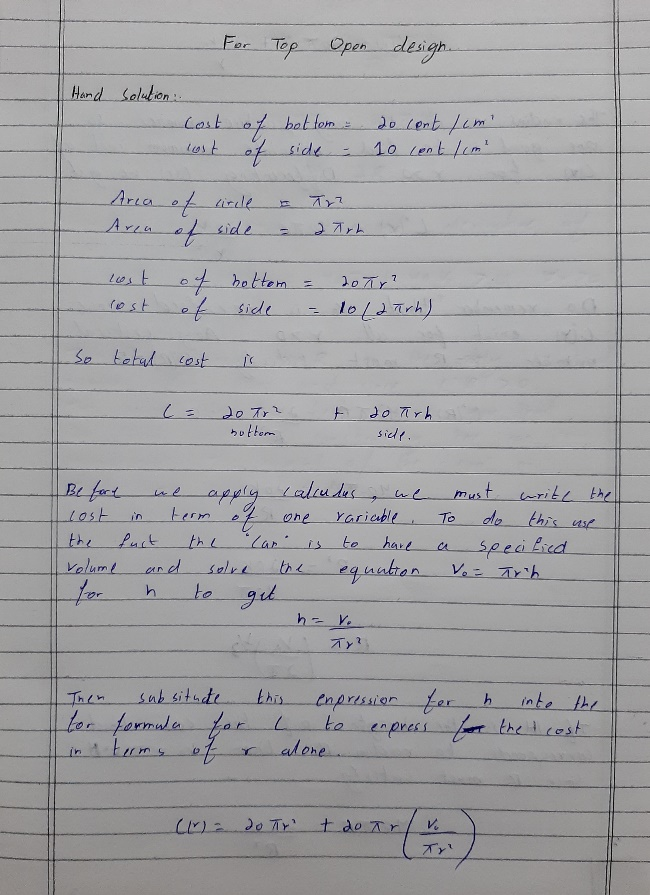 For Top Open design.
Hand Solution:
Cost of bottom = 20 cent /cm²
cost of side = 10 cent /cm²
Area of circle = πr²
Area of side = 2πrh
cost of bottom = 20πr²
cost of side = 10(2πrh)
So total cost is
C = 20πr² + 20πrh
bottom side.
Before we apply calculus, we must write the
cost in term of one variable. To do this use
the fact the "can" is to have a specified
volume and solve the equation V₀ = πr²h
for h to get
h = V₀
πr²
Then subsitude this enpression for h into the
for formula for C to enpress the cost
in terms of r alone.
C(r) = 20πr² + 20πr(V₀
πr²)